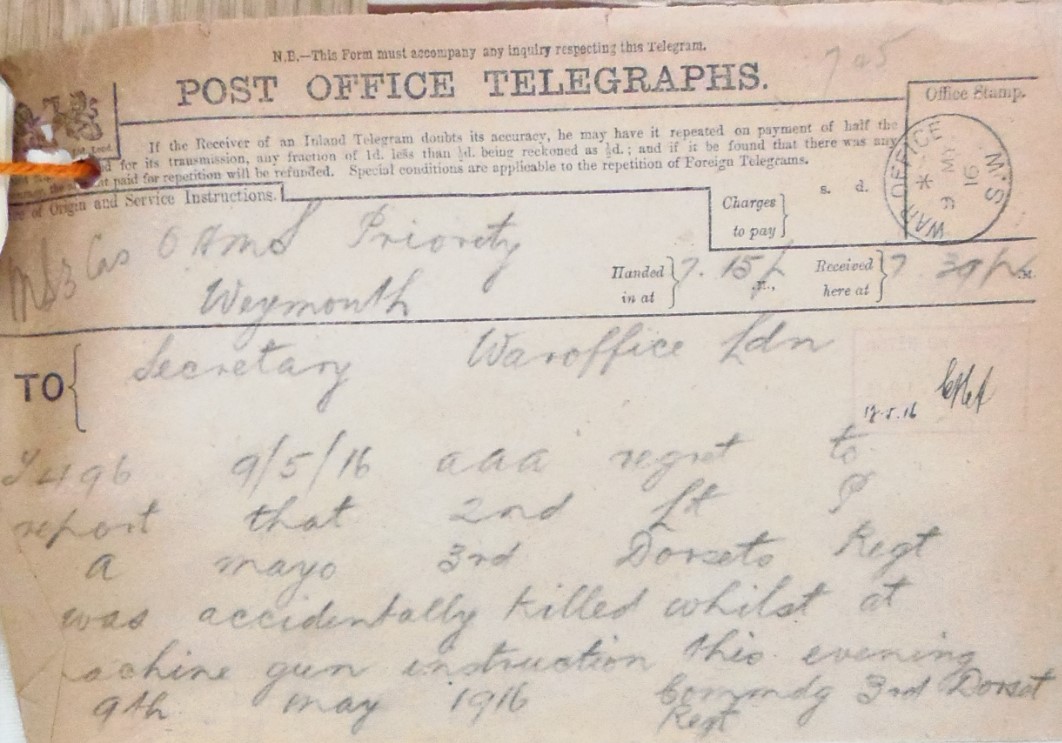 N.B.—This Form must accompany any inquiry respecting this Telegram.
745
POST OFFICE TELEGRAPHS.
Office Stamp.
If the Receiver of an Inland Telegram doubts its accuracy, he may have it repeated on payment of half the
for its transmission, any fraction of 1d. less than ½d. being reckoned as ½d.; and if it be found that there was any
paid for repetition will be refunded. Special conditions are applicable to the repetition of Foreign Telegrams.
of Origin and Service Instructions.
Charges to pay
s. d.
WAR OFFICE M.S
9 MY 16
MS3 Cas OHMS Priority
Weymouth
Handed in at 7. 15 p
Received here at 7 39 p M.
TO
Secretary Waroffice Ldn
12.5.16
496 9/5/16 aaa regret to
report that 2nd Lt P
A mayo 3rd Dorsets Regt
was accidentally killed whilst at
achine gun instruction this evening
9th may 1916 Commdg 3rd Dorset
Regt